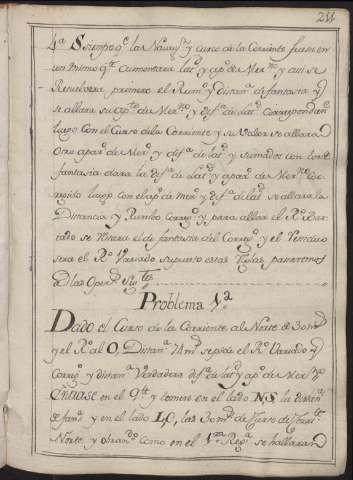 211
4ª Siempre q.e la Naveg.n y curso de la Corriente fuese en
un mismo q.te aumentara la l.d y ap.do de Mer.no y ansi se
Resolvera primero el Rumo y distan.a de fantasia y
se allara su ap.do de Mer.no y Dif.a de lat.d correspondien.
luego Con el Curso de la Corriente y su Valor se allara
otro apar.do de Mer.o y dif.a de lat.d y sumados con los de
fantasia dara la dif.a de lat.d y apar.do de Mer.no Co-
rregido luego con el ap.do de Mer.o y Dif.a de lat.d se allara la
Distancia y Rumbo Correg.o y para allar el R.o Var-
iado se Restara el de fantasia del Correg.o y el Residuo
sera el R.o Variado supuesto estas Reglas pasaremos
a las Oper.s Sig.tes
Problema 1.a
Dado el Curso de la Corriente al Norte de 30 m.s
y el R.o al O, Distan.a 74 m.s se pide el R.o Variado y
Correg.o y distan.a Verdadera dif.a de lat.d y ap.do de Mer.no
en el 9.te y tomese en el lado NS la distan.a
de fan.a y en el lado LO, las 30 m.s de Curso de Corri.te
Norte y obran.do como en el 1.ra Reg.a se hallaran